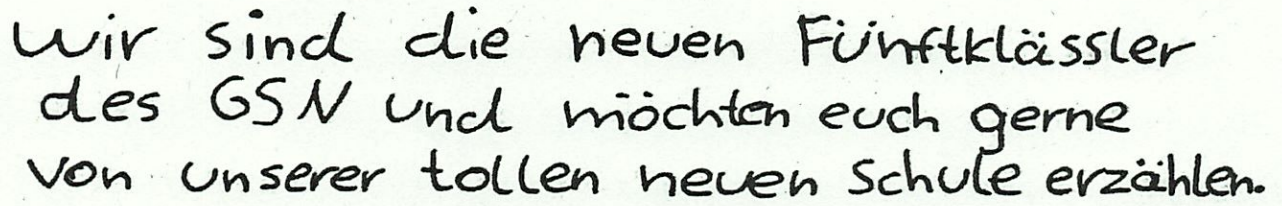 Wir sind die neuen Fünftklässler
des GSN und möchten euch gerne
von unserer tollen neuen Schule erzählen.